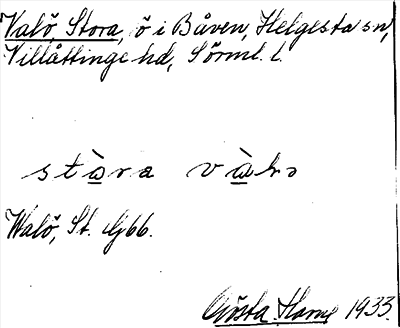 Valö, Stora, ö i Båven, Helgesta sn,
Villåttinge hd, Sörml. l.
stàra vàlɔ
Walö, St. Gj66.
Gösta Harne 1933.